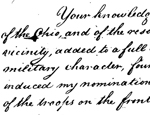 Your knowledg
of the Ohio, and of the reso
vicinity, added to a full
military character, four
induced my nomination
of the troops on the front